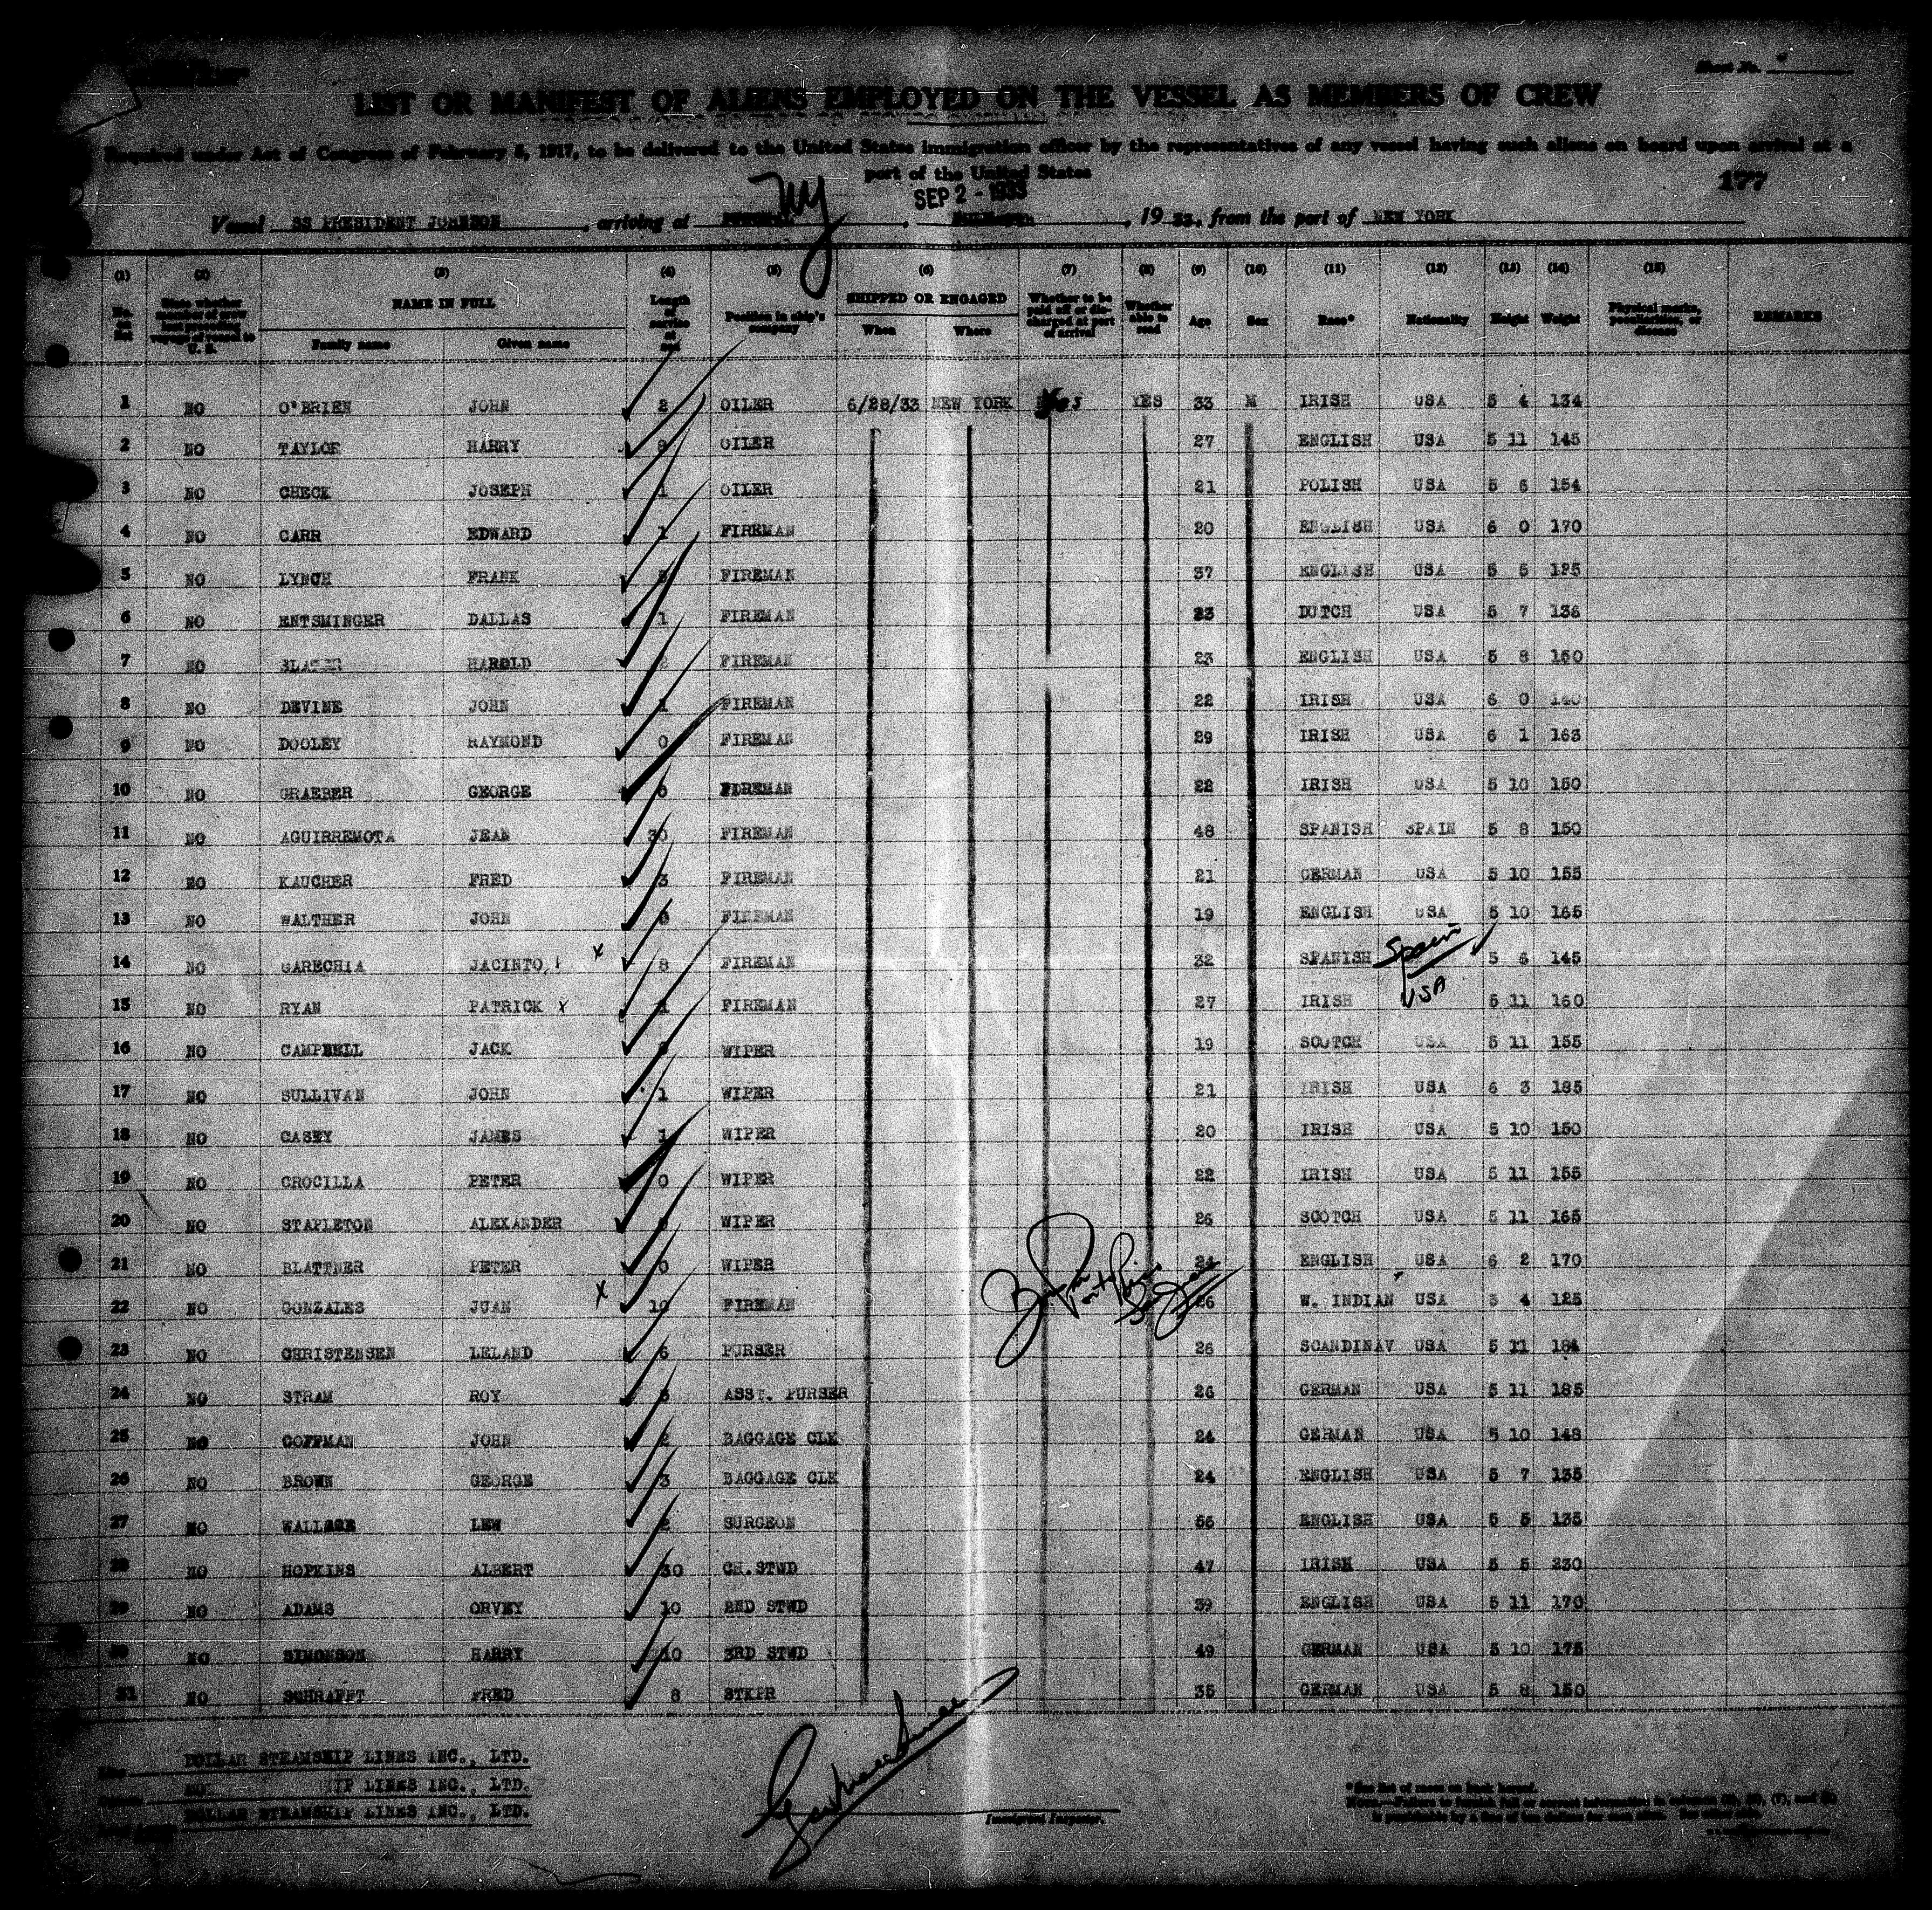 Sheet No.
LIST OR MANIFEST OF ALIENS EMPLOYED ON THE VESSEL AS MEMBERS OF CREW
Required under Act of Congress of February 5, 1917, to be delivered to the United States immigration officer by the representatives of any vessel having such aliens on board upon arrival at a
port of the United States
177
NY SEP 2 - 1933
Vessel SS PRESIDENT JOHNSON, arriving at , 19 33, from the port of NEW YORK
(1) (2) (3) (4) (5) (6) (7) (8) (9) (10) (11) (12) (13) (14) (15)
No. on list
NAME IN FULL
Family name Given name
Length of service at sea
Position in ship's company
SHIPPED OR ENGAGED
When Where
Whether to be paid off or discharged at port of arrival
Whether able to read
Age Sex Race* Nationality Height Weight
Physical marks, peculiarities, or disease
REMARKS
1 NO O'BRIEN JOHN 2 OILER 6/28/33 NEW YORK Yes YES 33 M IRISH USA 5 4 134
2 NO TAYLOR HARRY OILER 27 ENGLISH USA 5 11 145
3 NO CHECK JOSEPH 1 OILER 21 POLISH USA 5 6 154
4 NO CARR EDWARD 1 FIREMAN 20 ENGLISH USA 6 0 170
5 NO LYNCH FRANK FIREMAN 37 ENGLISH USA 5 5 125
6 NO ENTSMINGER DALLAS 1 FIREMAN 23 DUTCH USA 5 7 136
7 NO HAROLD FIREMAN 23 ENGLISH USA 5 8 150
8 NO DEVINE JOHN 1 FIREMAN 22 IRISH USA 6 0 140
9 NO DOOLEY RAYMOND 0 FIREMAN 29 IRISH USA 6 1 163
10 NO GRAEBER GEORGE FIREMAN 22 IRISH USA 5 10 150
11 NO AGUIRREMOTA JEAN 30 FIREMAN 48 SPANISH SPAIN 5 8 150
12 NO KAUCHER FRED 3 FIREMAN 21 GERMAN USA 5 10 155
13 NO WALTHER JOHN FIREMAN 19 ENGLISH USA 5 10 165
14 NO GARECHIA JACINTO x 8 FIREMAN 32 SPANISH Spain 5 6 145
15 NO RYAN PATRICK x 1 FIREMAN 27 IRISH USA 5 11 160
16 NO CAMPBELL JACK WIPER 19 SCOTCH USA 5 11 155
17 NO SULLIVAN JOHN 1 WIPER 21 IRISH USA 6 3 185
18 NO CASEY JAMES 1 WIPER 20 IRISH USA 5 10 150
19 NO CROCILLA PETER 0 WIPER 22 IRISH USA 5 11 155
20 NO STAPLETON ALEXANDER WIPER 26 SCOTCH USA 5 11 165
21 NO BLATTNER PETER 0 WIPER 24 ENGLISH USA 6 2 170
22 NO GONZALES JUAN x 10 FIREMAN 26 W. INDIAN USA 5 4 125
23 NO CHRISTENSEN LELAND 6 PURSER 26 SCANDINAV USA 5 11 184
24 NO STRAM ROY ASST. PURSER 26 GERMAN USA 5 11 185
25 NO COFFMAN JOHN 2 BAGGAGE CLK 24 GERMAN USA 5 10 148
26 NO BROWN GEORGE 3 BAGGAGE CLK 24 ENGLISH USA 5 7 135
27 NO WALLACE LEW 2 SURGEON 56 ENGLISH USA 5 5 135
28 NO HOPKINS ALBERT 30 CH.STWD 47 IRISH USA 5 5 230
29 NO ADAMS ORVEY 10 2ND STWD 39 ENGLISH USA 5 11 170
30 NO SIMONSON HARRY 10 3RD STWD 49 GERMAN USA 5 10 175
31 NO SCHRAFFT FRED 8 STKPR 35 GERMAN USA 5 8 150
DOLLAR STEAMSHIP LINES INC., LTD.
LINES INC., LTD.
DOLLAR STEAMSHIP LINES INC., LTD.
Immigrant Inspector.
*See list of races on back hereof.